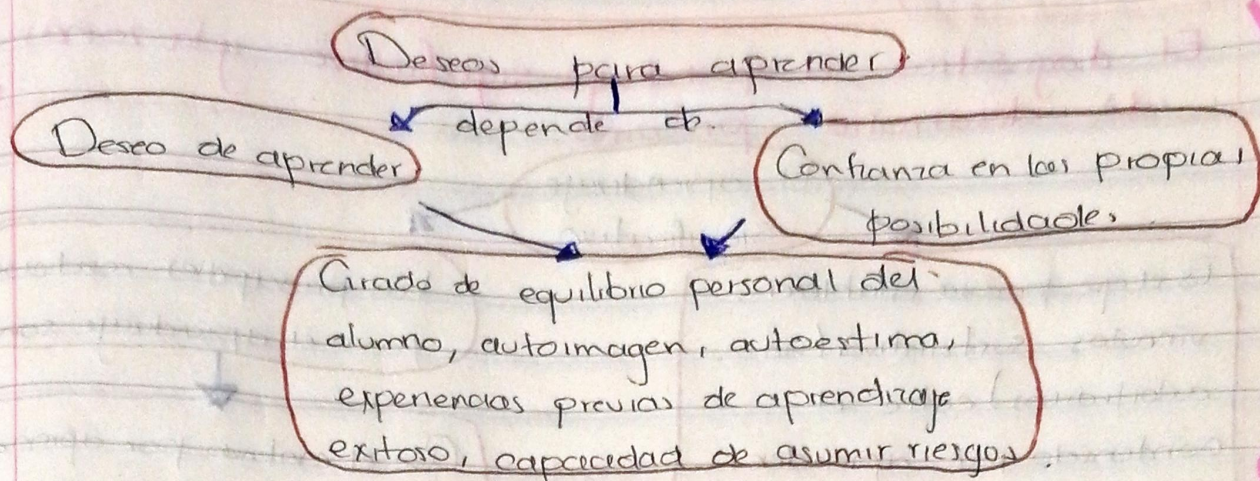 Deseos para aprender
depende de
Deseo de aprender
Confianza en las propias
posibilidades
Grado de equilibrio personal del
alumno, autoimagen, autoestima,
experiencias previas de aprendizaje
exitoso, capacedad de asumir riesgos.